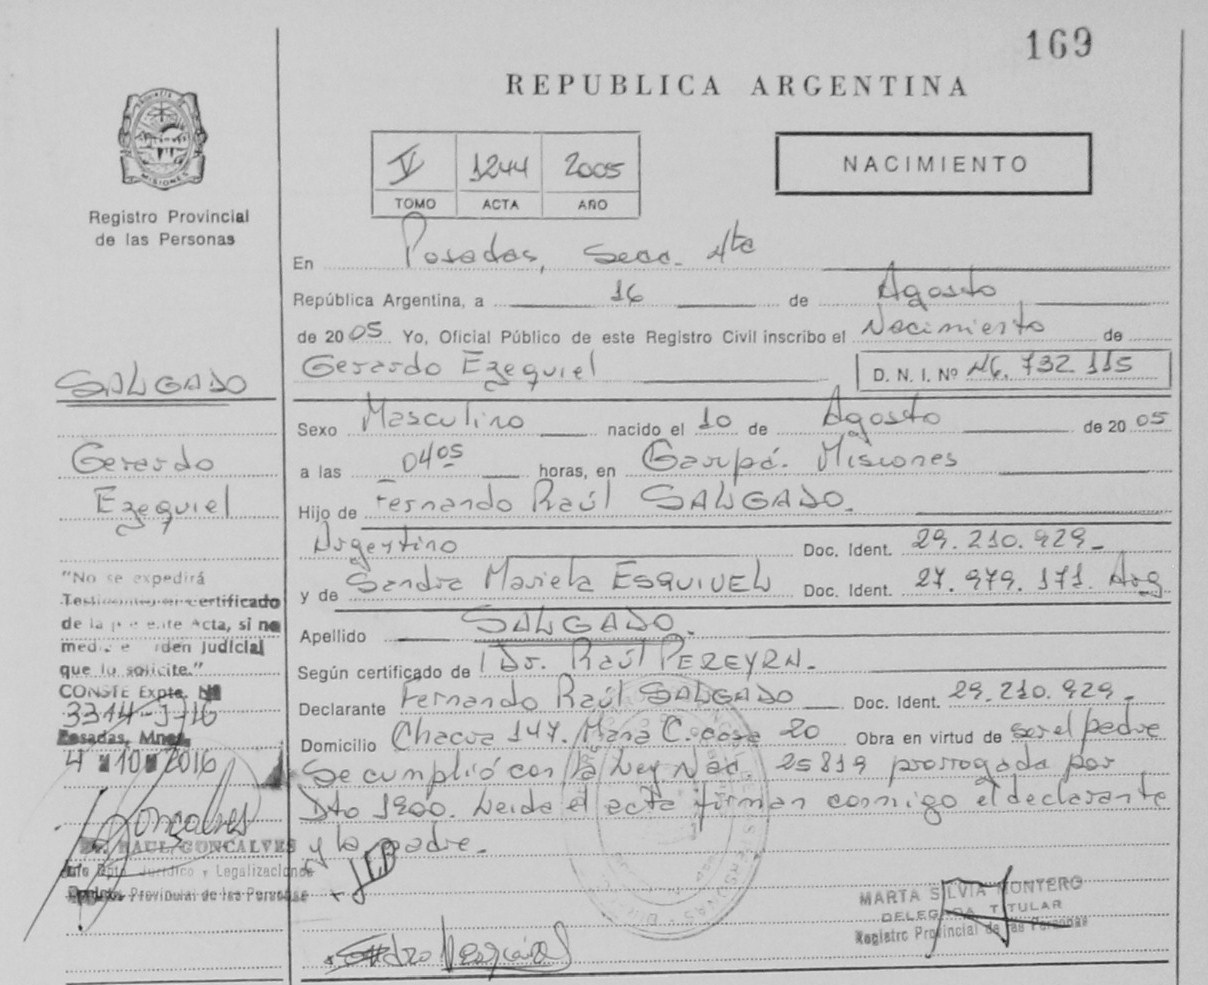 169
REPUBLICA ARGENTINA
PROVINCIA DE
MISIONES
Registro Provincial
de las Personas
V 1244 2005
TOMO ACTA AÑO
NACIMIENTO
En Posadas, Secc. 4ta
República Argentina, a 16 de Agosto
de 2005 Yo, Oficial Público de este Registro Civil inscribo el Nacimiento de
Gerardo Ezequiel D. N. I. Nº 46.732.115
Sexo Masculino nacido el 10 de Agosto de 2005
a las 04 05 horas, en Garupá. Misiones
Hijo de Fernando Raúl SALGADO.
Argentino Doc. Ident. 29.210.929-
y de Sandra Mariela ESQUIVEL Doc. Ident. 27.979.171. Arg
Apellido SALGADO.
Según certificado de Dr. Raúl PEREYRA.
Declarante Fernando Raúl SALGADO Doc. Ident. 29.210.929-
Domicilio Chacra 147. Mana C. casa 20 Obra en virtud de ser el padre
Se cumplió con la Ley Nac 25819 prorrogada por
Dto 1900. Leida el acta firman conmigo el declarante
y la padre.
SALGADO
Gerardo
Ezequiel
"No se expedirá
Testimonio or certificado
de la presente Acta, si no
media orden Judicial
que lo solicite."
CONSTE Expte. Nº
3314-J-16
Posadas, Mnes.
4 10 2016
Gonçalves
Dr. RAUL GONCALVES
Jefe Dpto. Jurídico y Legalizaciones
Registro Provincial de las Personas
MARTA SILVIA MONTERO
DELEGADA TITULAR
Registro Provincial de las Personas